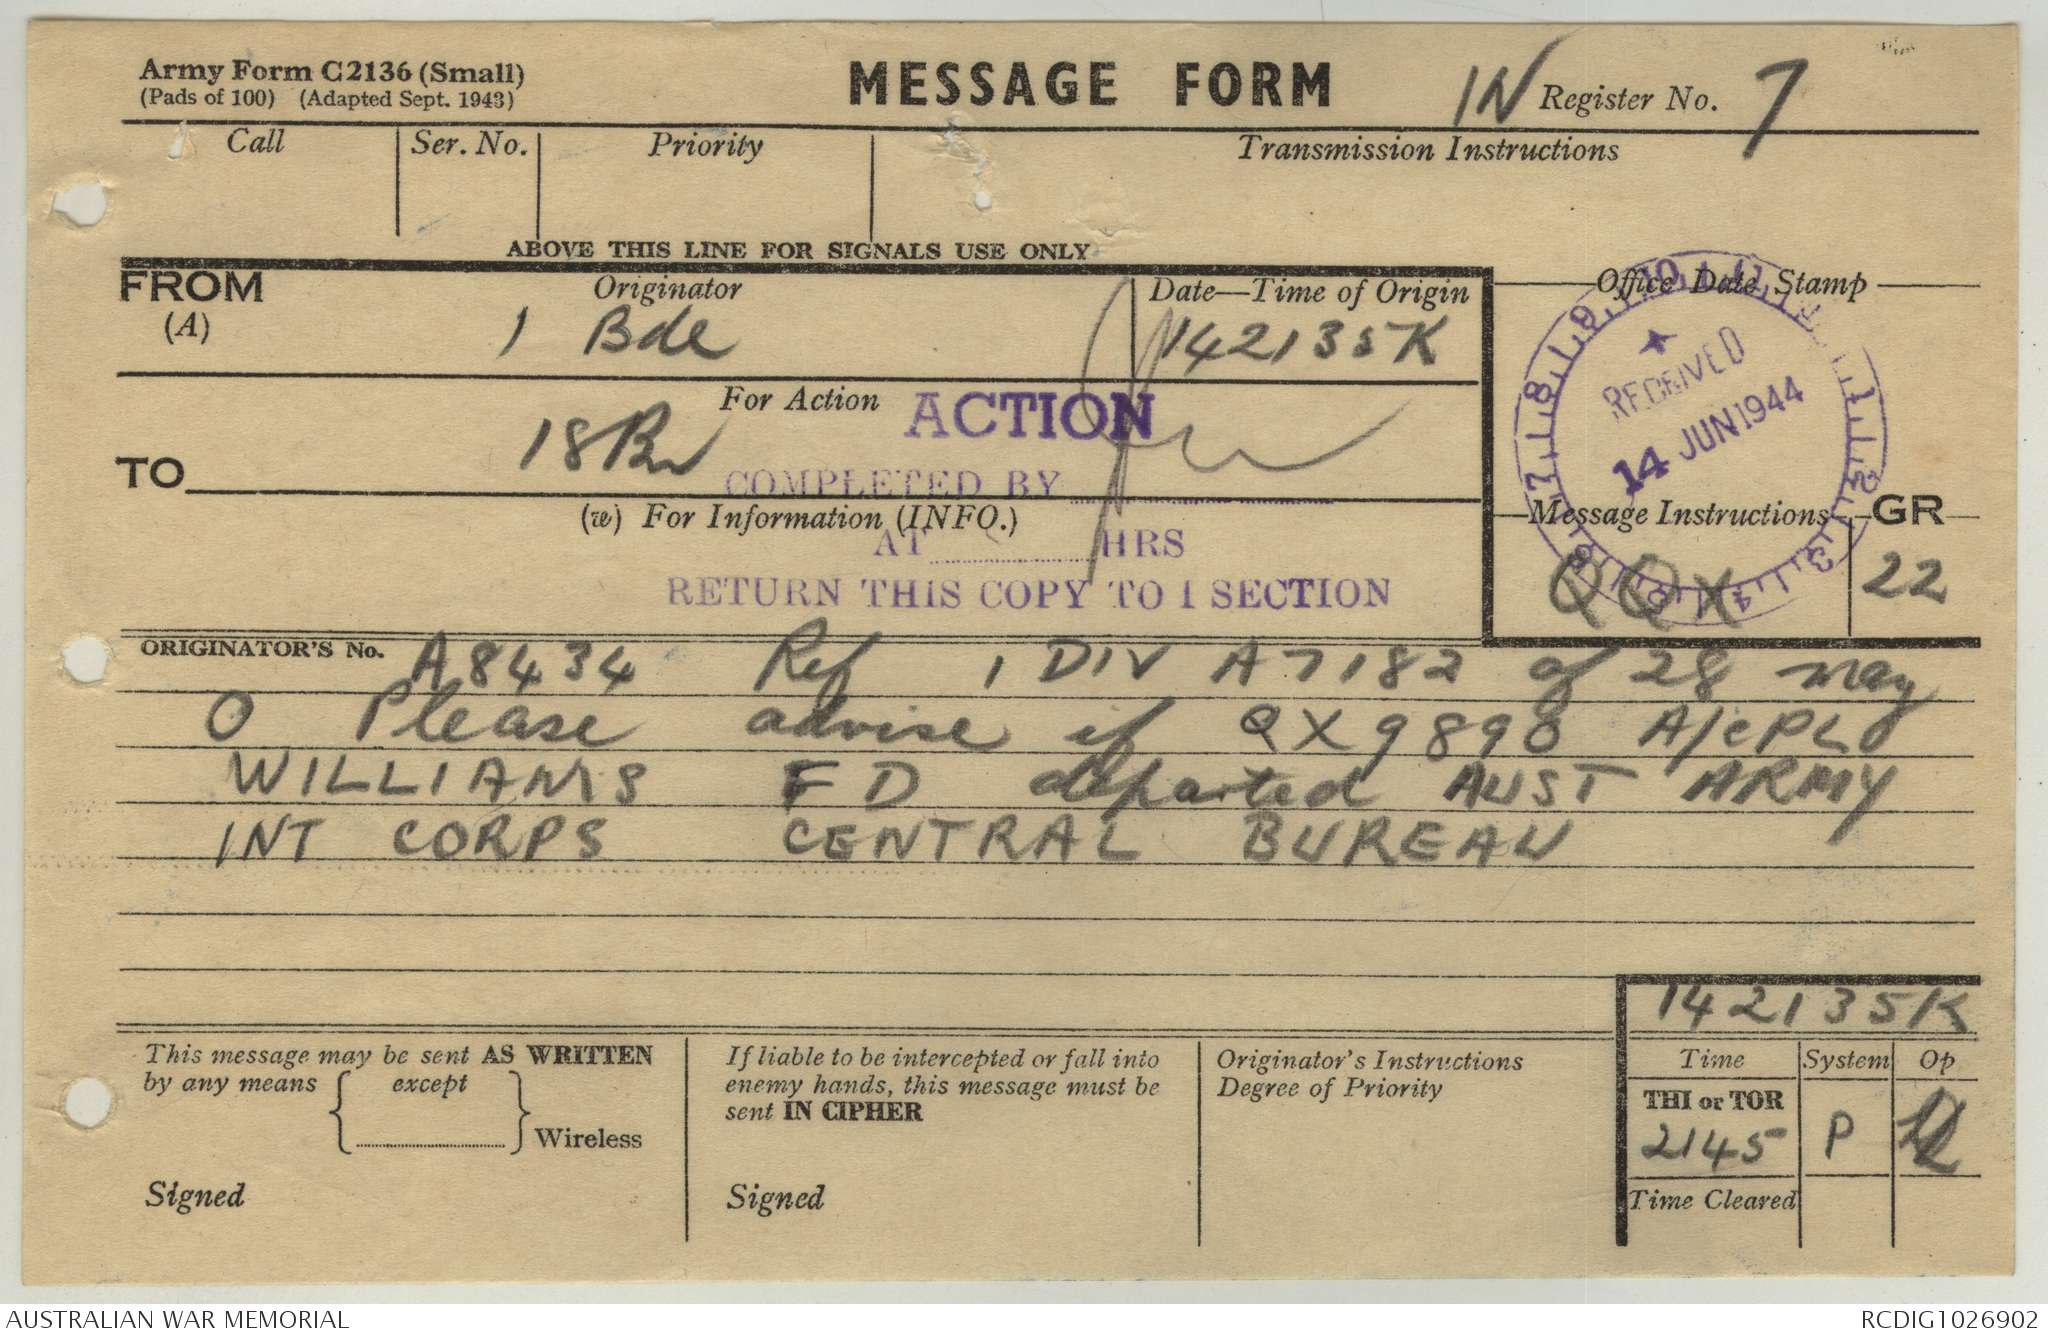 Army Form C2136 (Small)
(Pads of 100) (Adapted Sept. 1943)
MESSAGE FORM
IN Register No. 7
Call
Ser. No.
Priority
Transmission Instructions
ABOVE THIS LINE FOR SIGNALS USE ONLY
FROM
(A)
Originator
1 Bde
Date—Time of Origin
142135K
Office Date Stamp
10 11 1 2 3 4 5 6 7 8 9
RECEIVED
14 JUN 1944
For Action
ACTION
TO
18 Bn
COMPLETED BY
(w) For Information (INFO.)
AT HRS
RETURN THIS COPY TO 1 SECTION
Message Instructions
GR
QQX
22
ORIGINATOR'S No. A8434 Ref 1 DIV A7182 of 28 may
O Please advise if QX9890 A/cPL
WILLIAMS FD departed AUST ARMY
INT CORPS CENTRAL BUREAU
142135K
This message may be sent AS WRITTEN
by any means except
Wireless
Signed
If liable to be intercepted or fall into
enemy hands, this message must be
sent IN CIPHER
Signed
Originator's Instructions
Degree of Priority
Time System Op
THI or TOR
2145 P
Time Cleared
AUSTRALIAN WAR MEMORIAL
RCDIG1026902